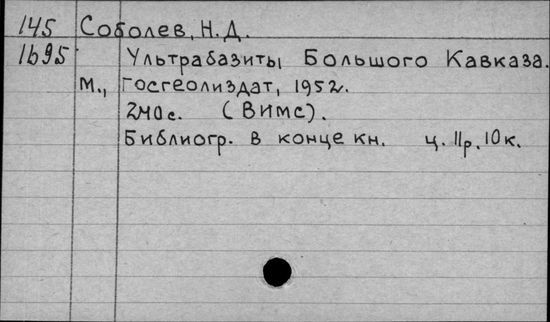 145 Соболев, Н.Д.
1695 Ультрабазиты Большого Кавказа.
М., Госгеолиздат, 1952.
240 с. (ВИМС).
Библиогр. в конце кн. ц. 11р. 10к.